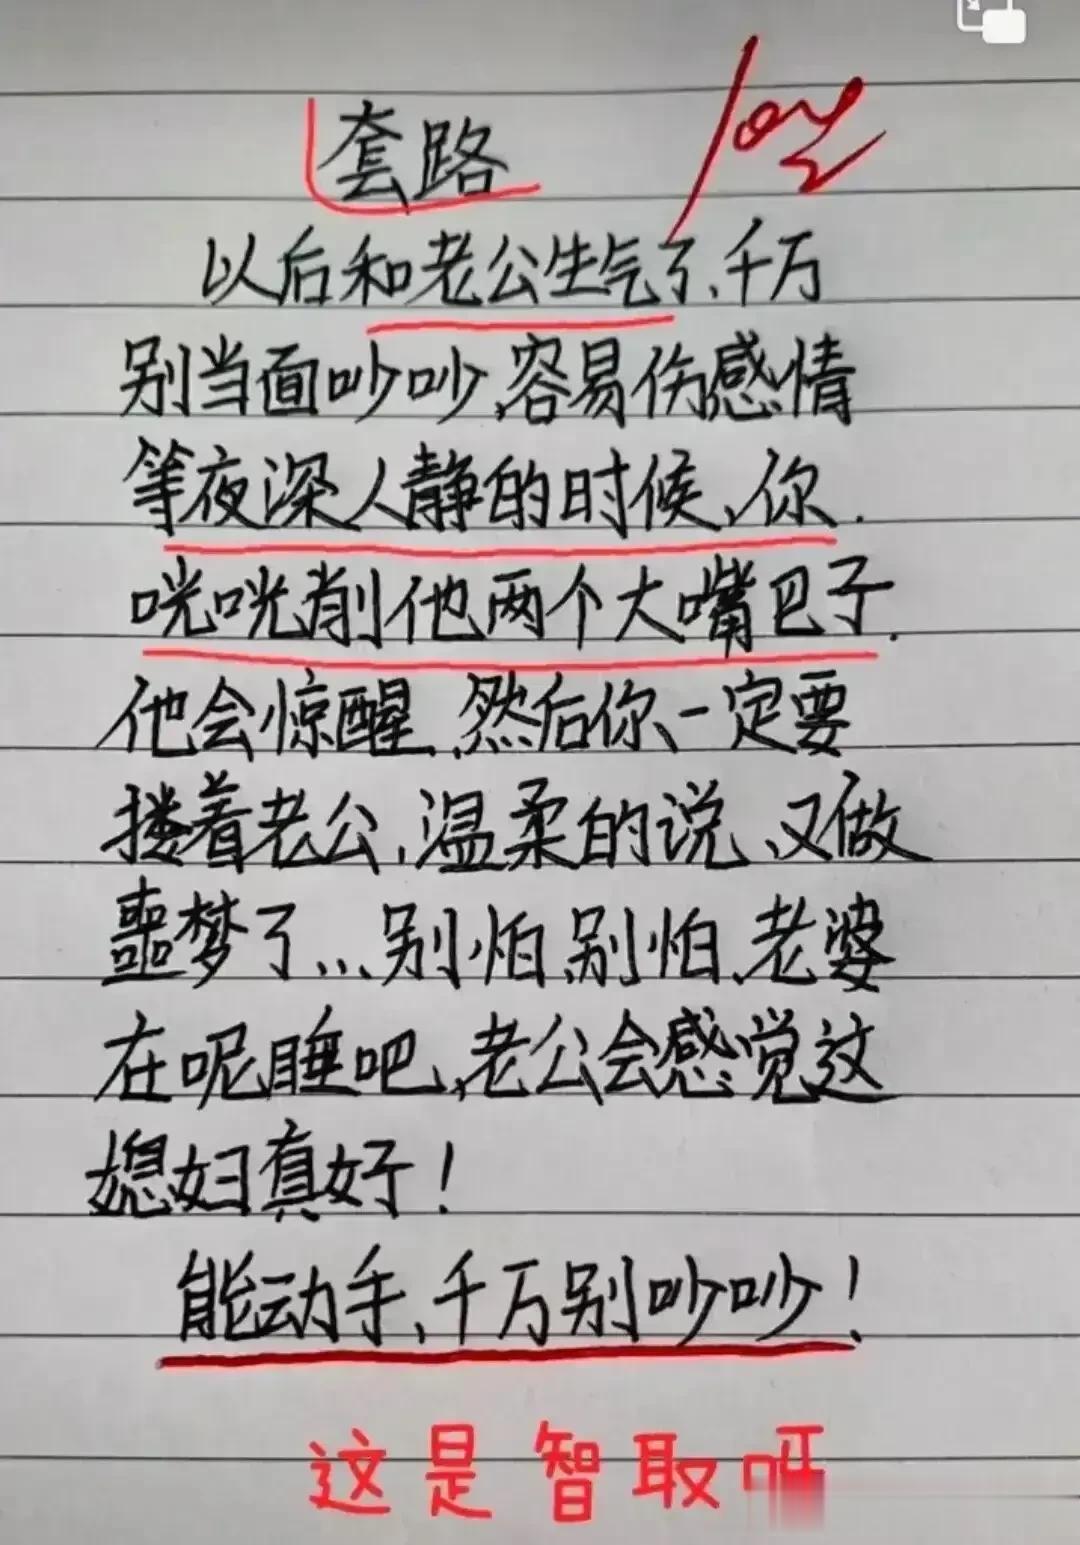 套路
以后和老公生气了、千万
别当面吵吵,容易伤感情
等夜深人静的时候、你.
咣咣削他两个大嘴巴子.
他会惊醒、然后你一定要
搂着老公,温柔的说、又做
噩梦了...别怕、别怕、老婆
在呢睡吧,老公会感觉这
媳妇真好!
能动手、千万别吵吵!
这是智取呀